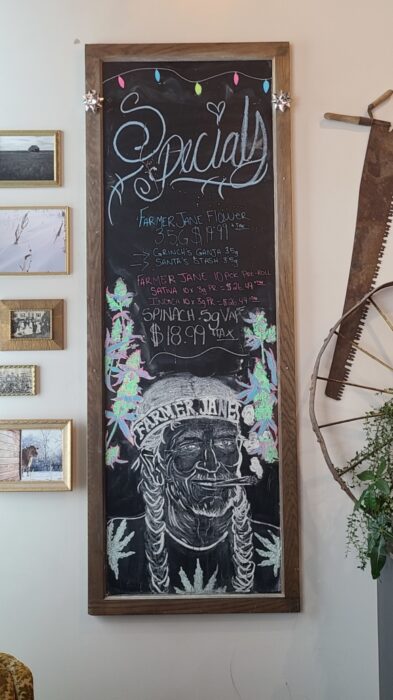 Specials
FARMER JANE FLOWER
3.5G $19.99 + TAX
→ GRINCH'S GANJA 3.5g
→ SANTA'S STASH 3.5g
FARMER JANE 10 PCK PRE-ROLL
SATIVA 10 x .3g PR = $26.49 + TAX
INDICA 10 x .3g PR = $26.49 + TAX
SPINACH .5g VAPE
$18.99 + TAX
FARMER JANE